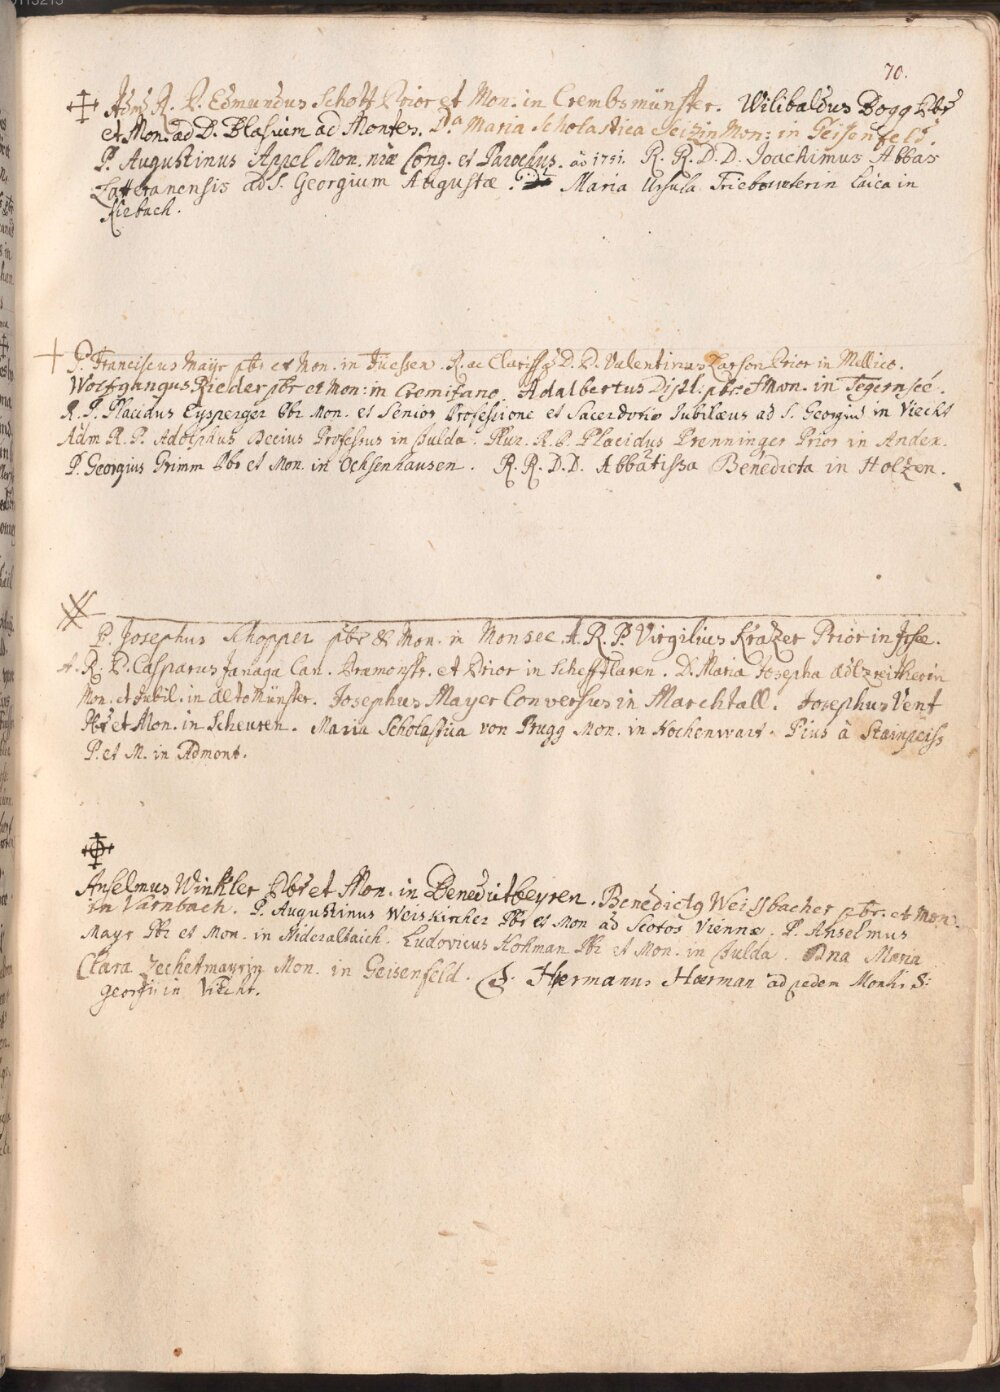 70.
Adm R. P. Edmundus Schott Prior et Mon. in Crembsmünster. Wilibaldus Bogg Pbr
et Mon. ad D. Blasium ad Montes. Da Maria Scholastica Seizin Mon: in Geissenfeld.
P. Augustinus Appel Mon. nræ Cong. et Parochus. ao 1751. R. R. D. D. Joachimus Abbas
Lateranensis ad S. Georgium Augustæ. Maria Ursula laica in
Kiebach.
P. Franciscus Mayr pbr et Mon. in Füessen. R. ac Clariss D. P. Valentinus Prior in Mellico.
Wolfgangus Rieder pbr et Mon: in Cremifano. Adalbertus Distl. pbr: et Mon. in Tegernsee.
R. P. Placidus Eysperger Pbr Mon. et Senior Professione et Sacerdotio Jubilæus ad S. Georgiu in Viecht
Adm R. P. Adolphus Decius Professus in Fulda. Plur. R. P. Placidus Prenninger Prior in Andex.
P. Georgius Grimm Pbr et Mon. in Ochsenhausen. R. R. D. D. Abbatissa Benedicta in Holzen.
P. Josephus Schopper pbr & Mon. in Monsee. A. R. P. Virgilius Krazer Prior in Irsee.
A. R. P. Casparus Janaga Can. Præmonstr. et Prior in Schefftlaren. D. Maria Josepha
Mon. et Jubil. in Altomünster. Josephus Mayer Conversus in Marchtall. Josephus Vent
Pbr et Mon. in Scheuren. Maria Scholastica von Prugg Mon. in Hochenwart. Pius à Stainpeiss
P. et M. in Admont.
Anselmus Winkler Pbr et Mon. in Benedictbeyren. Benedictg Weissbacher pbr. et Mon:
in Varnbach. P. Augustinus Weiskircher Pbr et Mon ad Scotos Viennæ. P. Anselmus
Mayr Pbr et Mon. in Nideraltaich. Ludovicus Hohman Pbr et Mon. in Fulda. Dna Maria
Clara Zechetmayrin Mon. in Geisenfeld. Hermanus Hærman ad pedem Montis S:
Georgii in Viecht.